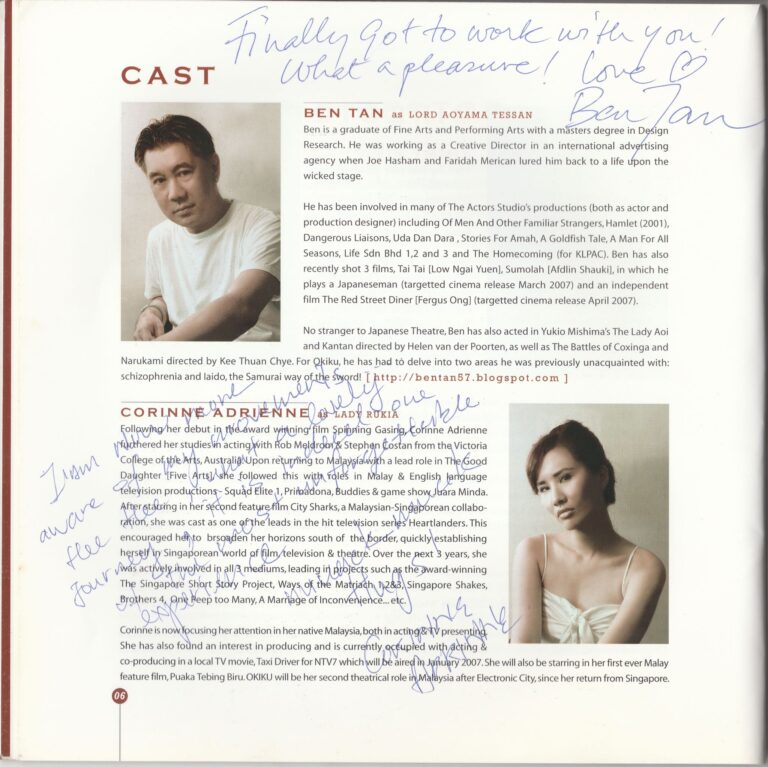 Finally got to work with you!
What a pleasure! Love ♡
Ben Tan
CAST
BEN TAN as LORD AOYAMA TESSAN
Ben is a graduate of Fine Arts and Performing Arts with a masters degree in Design
Research. He was working as a Creative Director in an international advertising
agency when Joe Hasham and Faridah Merican lured him back to a life upon the
wicked stage.
He has been involved in many of The Actors Studio's productions (both as actor and
production designer) including Of Men And Other Familiar Strangers, Hamlet (2001),
Dangerous Liaisons, Uda Dan Dara , Stories For Amah, A Goldfish Tale, A Man For All
Seasons, Life Sdn Bhd 1,2 and 3 and The Homecoming (for KLPAC). Ben has also
recently shot 3 films, Tai Tai [Low Ngai Yuen], Sumolah [Afdlin Shauki], in which he
plays a Japaneseman (targetted cinema release March 2007) and an independent
film The Red Street Diner [Fergus Ong] (targetted cinema release April 2007).
No stranger to Japanese Theatre, Ben has also acted in Yukio Mishima's The Lady Aoi
and Kantan directed by Helen van der Poorten, as well as The Battles of Coxinga and
Narukami directed by Kee Thuan Chye. For Okiku, he has had to delve into two areas he was previously unacquainted with:
schizophrenia and Iaido, the Samurai way of the sword! [ http://bentan57.blogspot.com ]
CORINNE ADRIENNE as LADY RUKIA
Following her debut in the award winning film Spinning Gasing, Corinne Adrienne
furthered her studies in acting with Rob Meldrom & Stephen Costan from the Victoria
College of the Arts, Australia. Upon returning to Malaysia with a lead role in The Good
Daughter [Five Arts], she followed this with roles in Malay & English language
television productions - Squad Elite 1, Primadona, Buddies & game show Juara Minda.
After starring in her second feature film City Sharks, a Malaysian-Singaporean collabo-
ration, she was cast as one of the leads in the hit television series Heartlanders. This
encouraged her to brsoaden her horizons south of the border, quickly establishing
herself in Singaporean world of film, television & theatre. Over the next 3 years, she
was actively involved in all 3 mediums, leading in projects such as the award-winning
The Singapore Short Story Project, Ways of the Matriach 1,2&3, Singapore Shakes,
Brothers 4, One Peep too Many, A Marriage of Inconvenience... etc.
Corinne is now focusing her attention in her native Malaysia, both in acting & TV presenting.
She has also found an interest in producing and is currently occupied with acting &
co-producing in a local TV movie, Taxi Driver for NTV7 which will be aired in January 2007. She will also be starring in her first ever Malay
feature film, Puaka Tebing Biru. OKIKU will be her second theatrical role in Malaysia after Electronic City, since her return from Singapore.
I am much more
aware of my movements
what a lovely
journey, it is indeed one
of the most unforgettable
experience
hugs!
Corinne
Adrienne
06